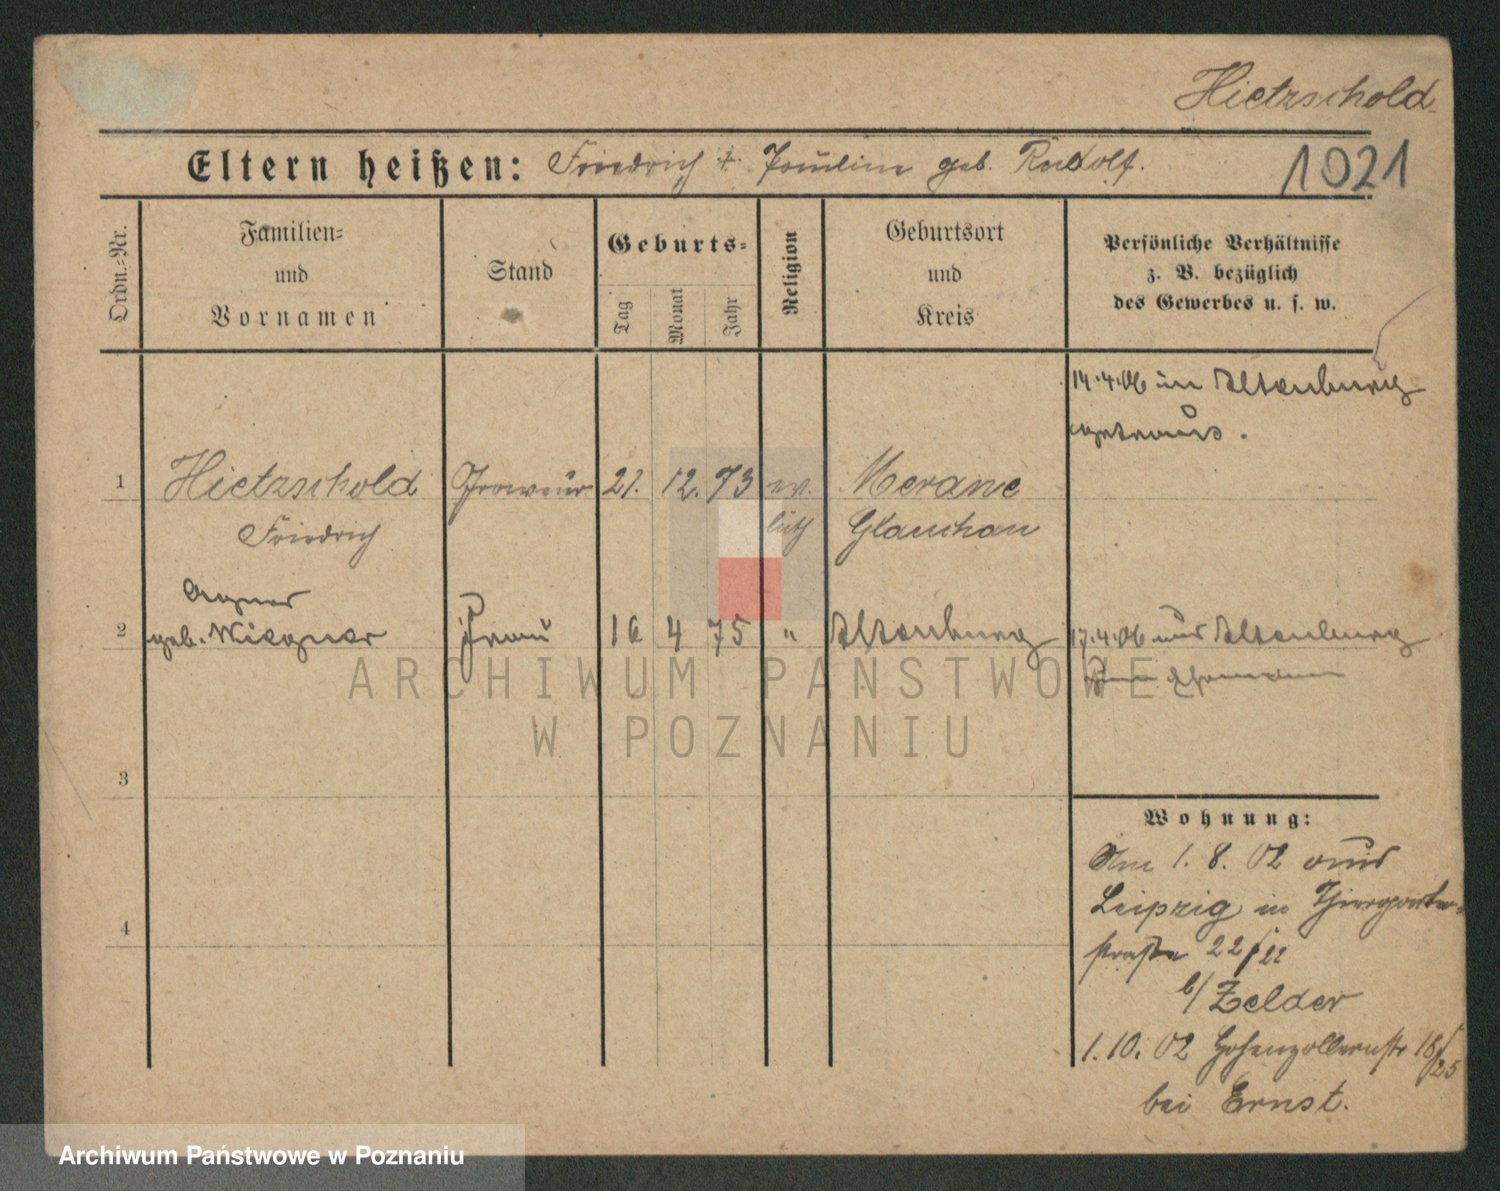 Hietzschold
Eltern heißen: Friedrich + Pauline geb. Rudolf.
1021
Ordn.-Nr.
Familien-
und
Vornamen
Stand
Geburts-
Tag
Monat
Jahr
Religion
Geburtsort
und
Kreis
Persönliche Verhältnisse
z. B. bezüglich
des Gewerbes u. s. w.
14.4.06 in Altenburg
getraut.
1 Hietzschold Graveur 21. 12. 73 ev. Merane
Friedrich luth Glauchau
Agnes
2 geb. Wiegner Frau 16 4 75 " Altenburg 17.4.06 aus Altenburg
zum Ehemann
3
4
Wohnung:
Am 1. 8. 02 aus
Leipzig in Thiergarten-
straße 22/
b/ Zelder
1. 10. 02 Hohenzollernstr 18/25
bei Ernst.
ARCHIWUM PAŃSTWOWE
W POZNANIU
Archiwum Państwowe w Poznaniu